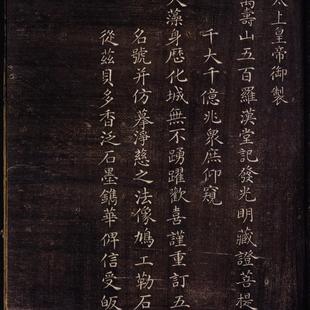 太上皇帝御製
萬壽山五百羅漢堂記發光明藏證菩提
人藻身歷化城無不踴躍歡喜謹重訂五
千大千億兆衆庶仰窺
名號并仿摹淨慈之法像鳩工勒石
從茲貝多香泛石墨鐫華俾信受皈